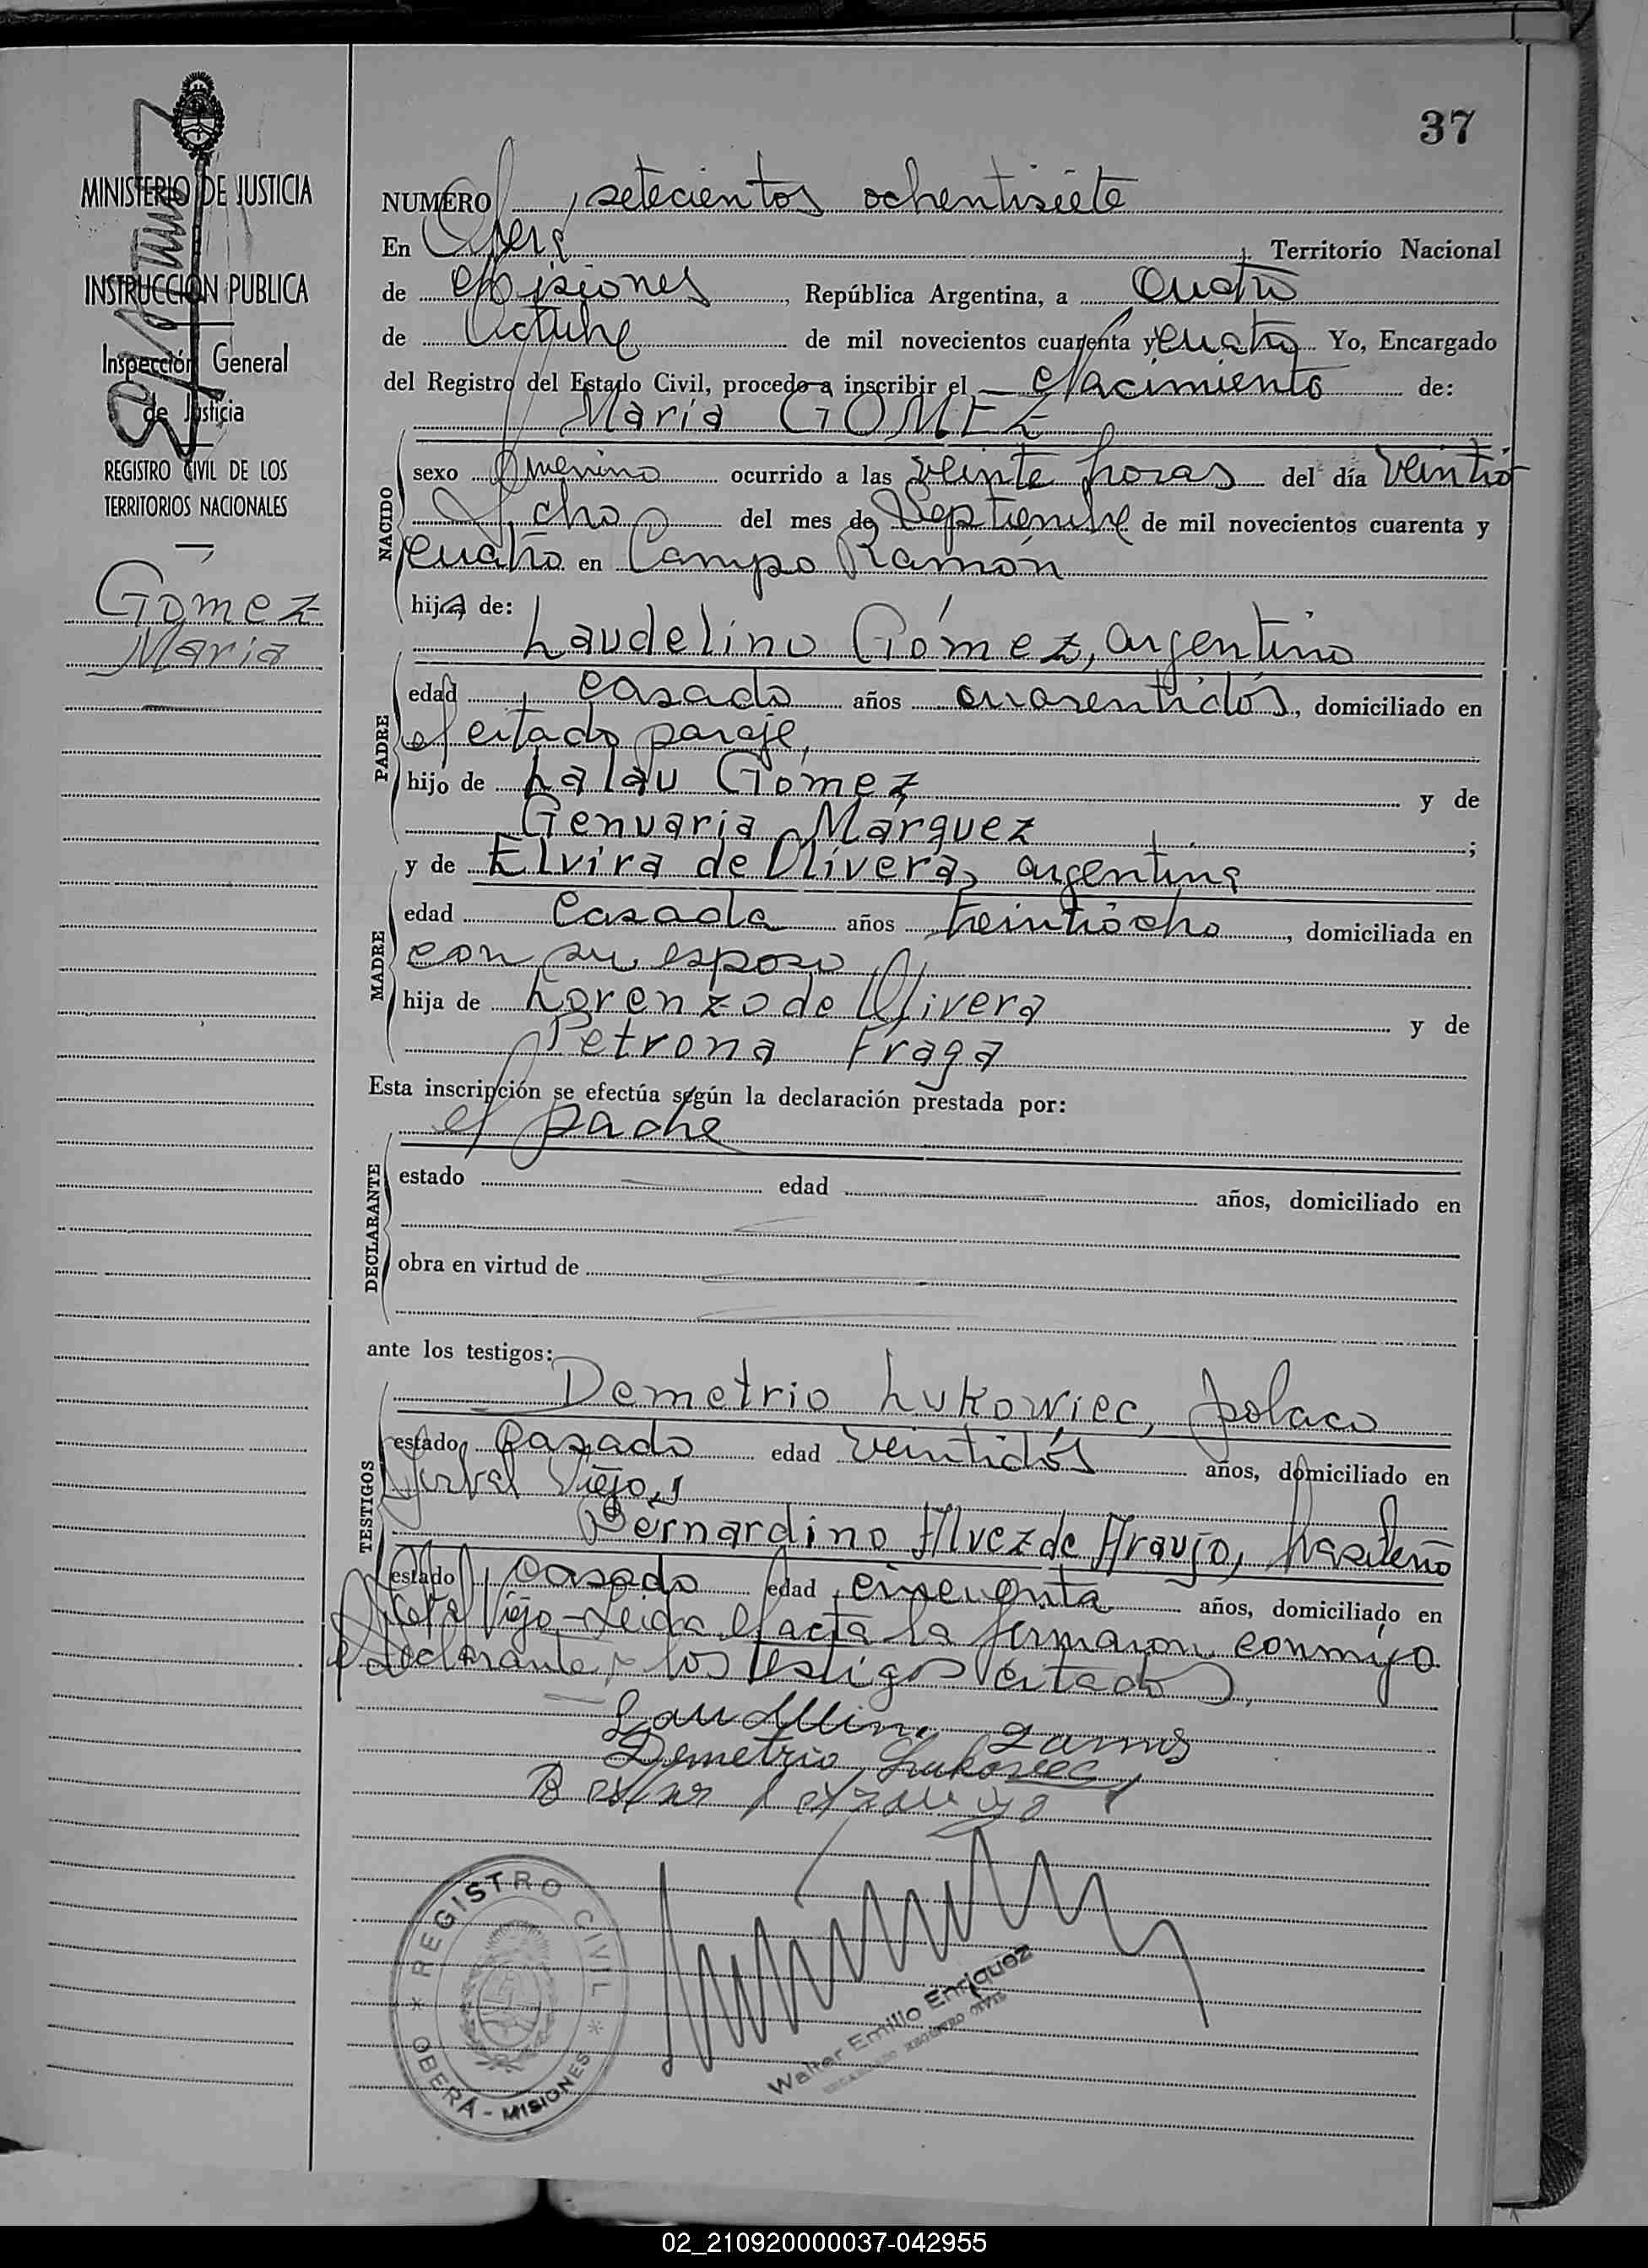 37
MINISTERIO DE JUSTICIA
E
INSTRUCCION PUBLICA
Inspección General
de Justicia
REGISTRO CIVIL DE LOS
TERRITORIOS NACIONALES
Gomez
Maria
NUMERO setecientos ochentisiete
En Oberá, Territorio Nacional
de Misiones, República Argentina, a cuatro
de Octubre de mil novecientos cuarenta y cuatro Yo, Encargado
del Registro del Estado Civil, procedo a inscribir el Nacimiento de:
María GOMEZ
NACIDO
sexo femenino ocurrido a las veinte horas del día veintio
cho del mes de Septiembre de mil novecientos cuarenta y
cuatro en Campo Ramón
hija de:
Laudelino Gómez, argentino
PADRE
edad casado años cuarentidós, domiciliado en
el citado paraje,
hijo de Lalau Gómez y de
Genuaria Márquez ;
y de Elvira de Olivera, argentina
MADRE
edad casada años treintiocho, domiciliada en
con su esposo,
hija de Lorenzo de Olivera y de
Petrona Fraga
Esta inscripción se efectúa según la declaración prestada por:
el padre
DECLARANTE
estado edad años, domiciliado en
obra en virtud de
ante los testigos:
Demetrio Lukowiec, polaco
TESTIGOS
estado casado edad veintidós años, domiciliado en
Yerbal Viejo, y
Bernardino Alvez de Araujo, brasileño
estado casado edad cincuenta años, domiciliado en
Viejo - Leida el acta la firmaron conmigo
el declarante y los testigos citados,
Demetrio Lukowiec
REGISTRO CIVIL
OBERÁ - MISIONES
Walter Emilio Enriquez
ENCARGADO REGISTRO CIVIL
02_210920000037-042955